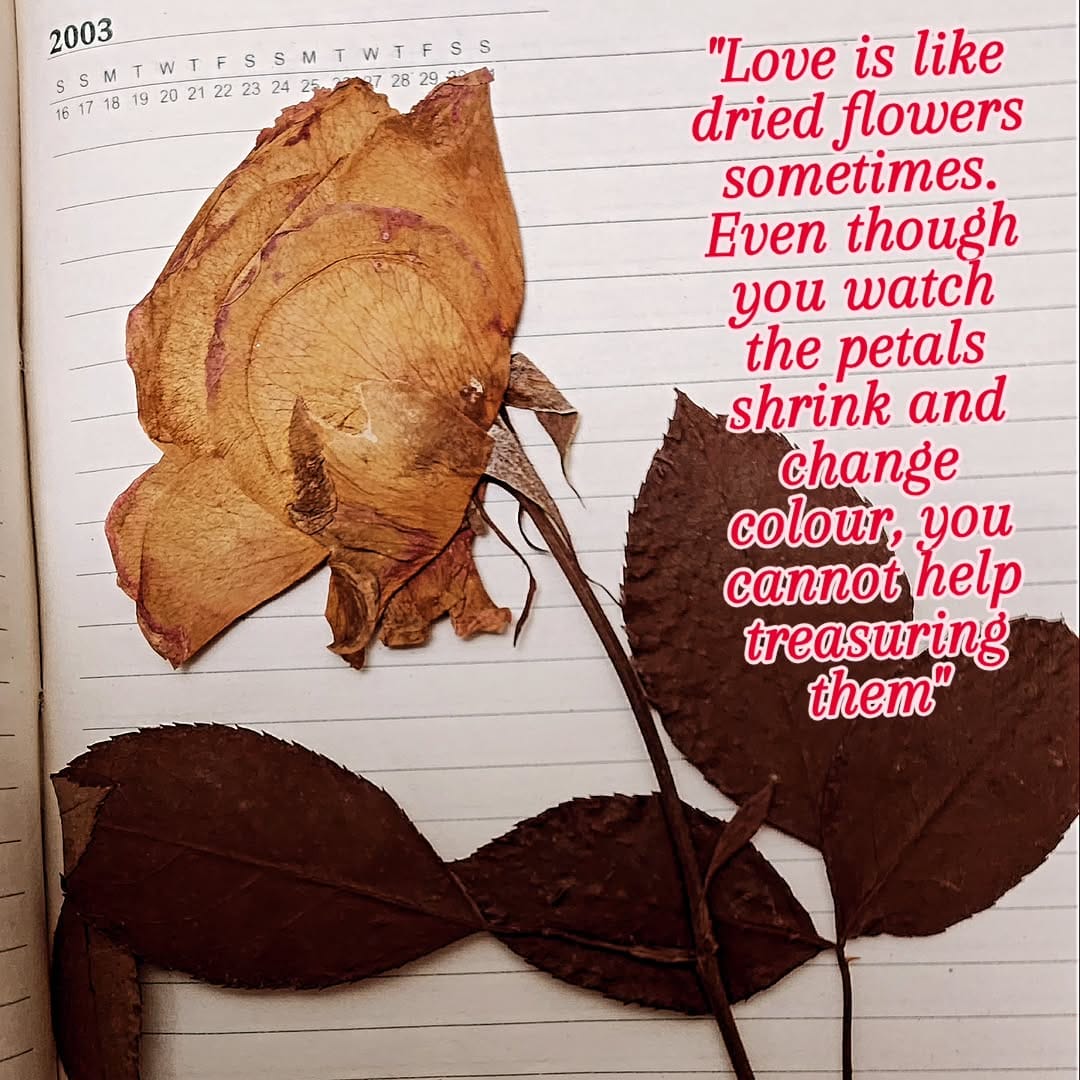 2003
S S M T W T F S S M T W T F S S
16 17 18 19 20 21 22 23 24 25 27 28 29
"Love is like
dried flowers
sometimes.
Even though
you watch
the petals
shrink and
change
colour, you
cannot help
treasuring
them"